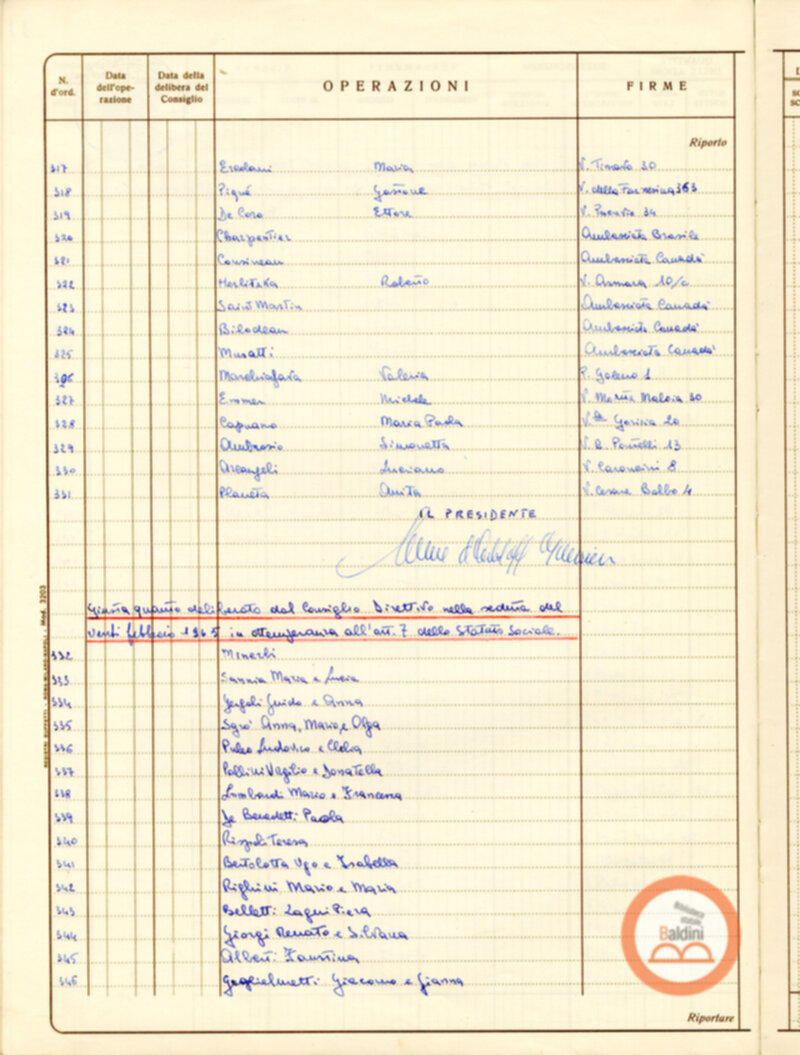 N. d'ord.
Data dell'operazione
Data della delibera del Consiglio
OPERAZIONI
FIRME
Riporto
317 Eredami Maria V. Timavo 30
318 Piqué Gastone V. della Farnesina 363
319 De Coro Ettore V. 34
320 Charpentier Ambasciata Brasile
321 Cousineau Ambasciata Canadà
322 Herlitzka Roberto V. Asmara 10/c
323 Saint Martin Ambasciata Canadà
324 Bilodeau Ambasciata Canadà
325 Musatti Ambasciata Canadà
326 Marchiafava Valeria P. Galeno 1
327 Emmer Michele V. Maria Maloia 30
328 Capuano Maria Paola V. Gorizia 20
329 Ambrosio Simonetta V. 13
330 Arcangeli Luciano V. Caroncini 8
331 Planeta Anita V. Cesare Balbo 4
IL PRESIDENTE
Giusta quanto deliberato dal Consiglio Direttivo nella seduta del
venti febbraio 1965 in ottemperanza all'art. 7 dello Statuto Sociale.
332 Minerbi
333 Sannia Maria e Lucia
334 Guido e Anna
335 Sgrò Anna, Mario e Olga
336 Puleo Ludovico e Clelia
337 Pollini Virgilio e Donatella
338 Lombardi Mario e Francesca
339 De Benedetti Paola
340 Rispoli Teresa
341 Bertolotta Ugo e Isabella
342 Righini Mario e Maria
343 Belletti Zagni Piera
344 Giorgi Renato e Silvana
345 Alberti Faustina
346 Guglielmetti Giacomo e Gianna
Riportare
Mod. 3203
Biblioteca statale
Baldini